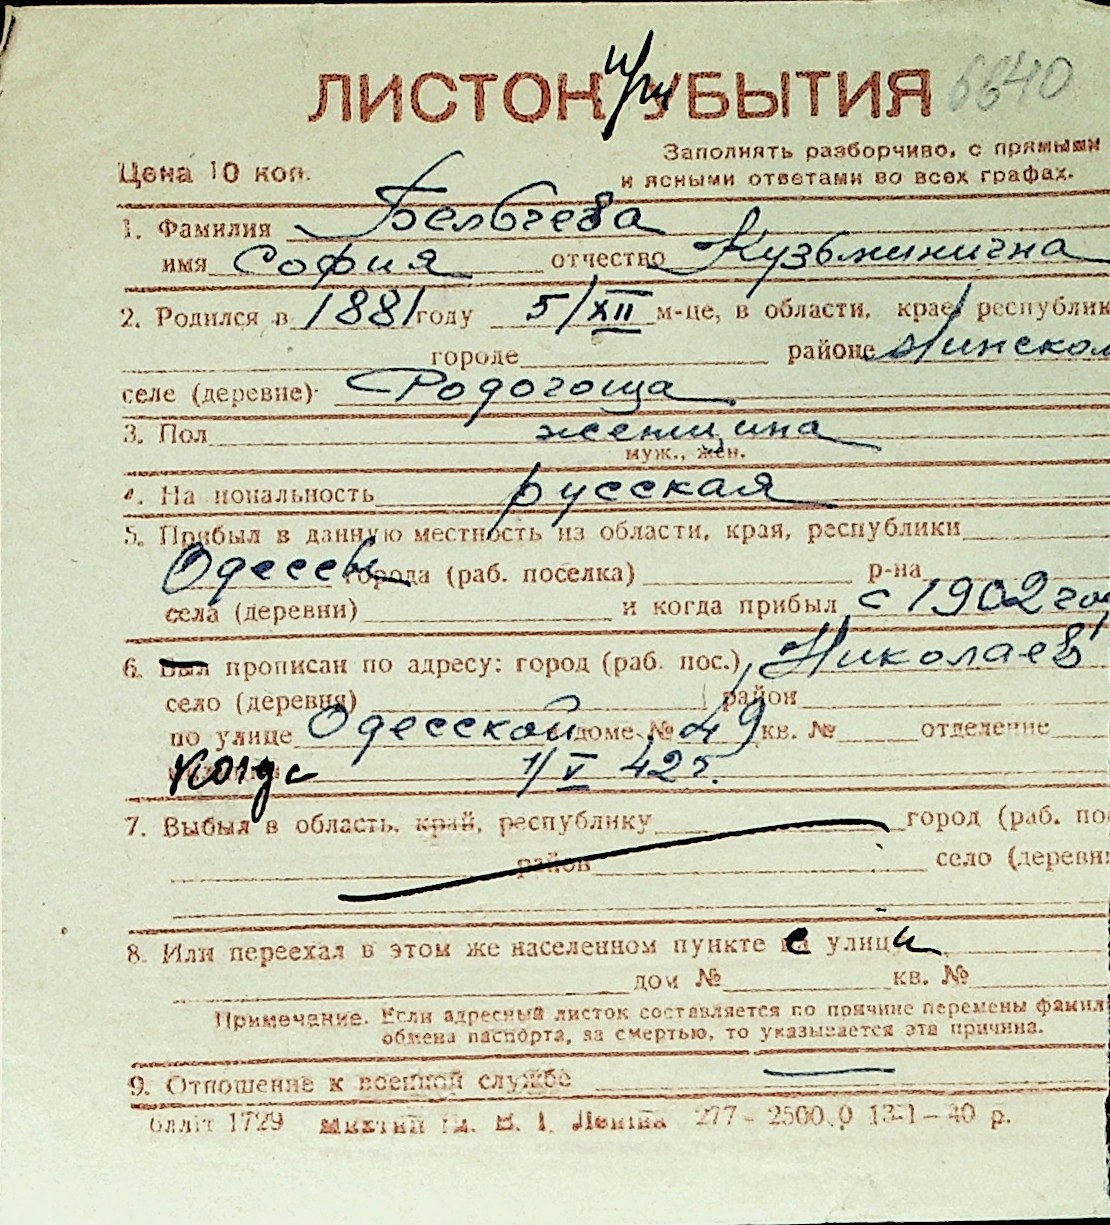 ЛИСТОК УБЫТИЯ
при
6640
Цена 10 коп.
Заполнять разборчиво, с прямыми
и ясными ответами во всех графах.
1. Фамилия Бельчева
имя София отчество Кузьминична
2. Родился в 1881 году 5/XII м-це, в области, крае, республик
городе районе Минском
селе (деревне) Родогоща
3. Пол женщина
муж., жен.
4. На иональность русская
5. Прибыл в данную местность из области, края, республики
Одессы города (раб. поселка) р-на
села (деревни) и когда прибыл с 1902 год
6. Был прописан по адресу: город (раб. пос.) Николаев
село (деревня) район
по улице Одесской доме № 49 кв. № отделение
Когда 1/V 42 г.
7. Выбыл в область, край, республику город (раб. по
район село (деревн
8. Или переехал в этом же населенном пункте с улици
дом № кв. №
Примечание. Если адресный листок составляется по причине перемены фамил
обмена паспорта, за смертью, то указывается эта причина.
9. Отношение к военной службе
блліт 1729 ім. В. І. Леніна 277 – 2500.0 13-1-40 р.